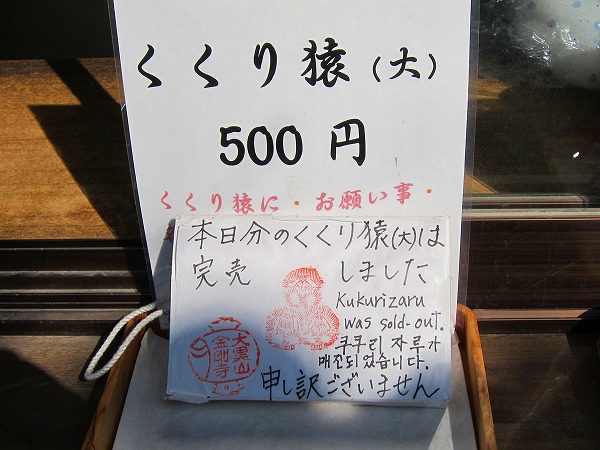 くくり猿(大)
500円
くくり猿に・お願い事・
本日分のくくり猿(大)は
完売しました
Kukurizaru
was sold-out.
쿠쿠리 자루가
매진되었습니다.
申し訳ございません
大黒山
金剛寺